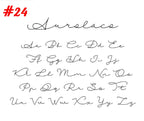 #24
Aurolacs
Aa Bb Cc Dd Ee
Ff Gg Hh Ii Jj
Kk Ll Mm Nn Oo
Pp Qq Rr Ss Tt
Uu Vv Ww Xx Yy Zz